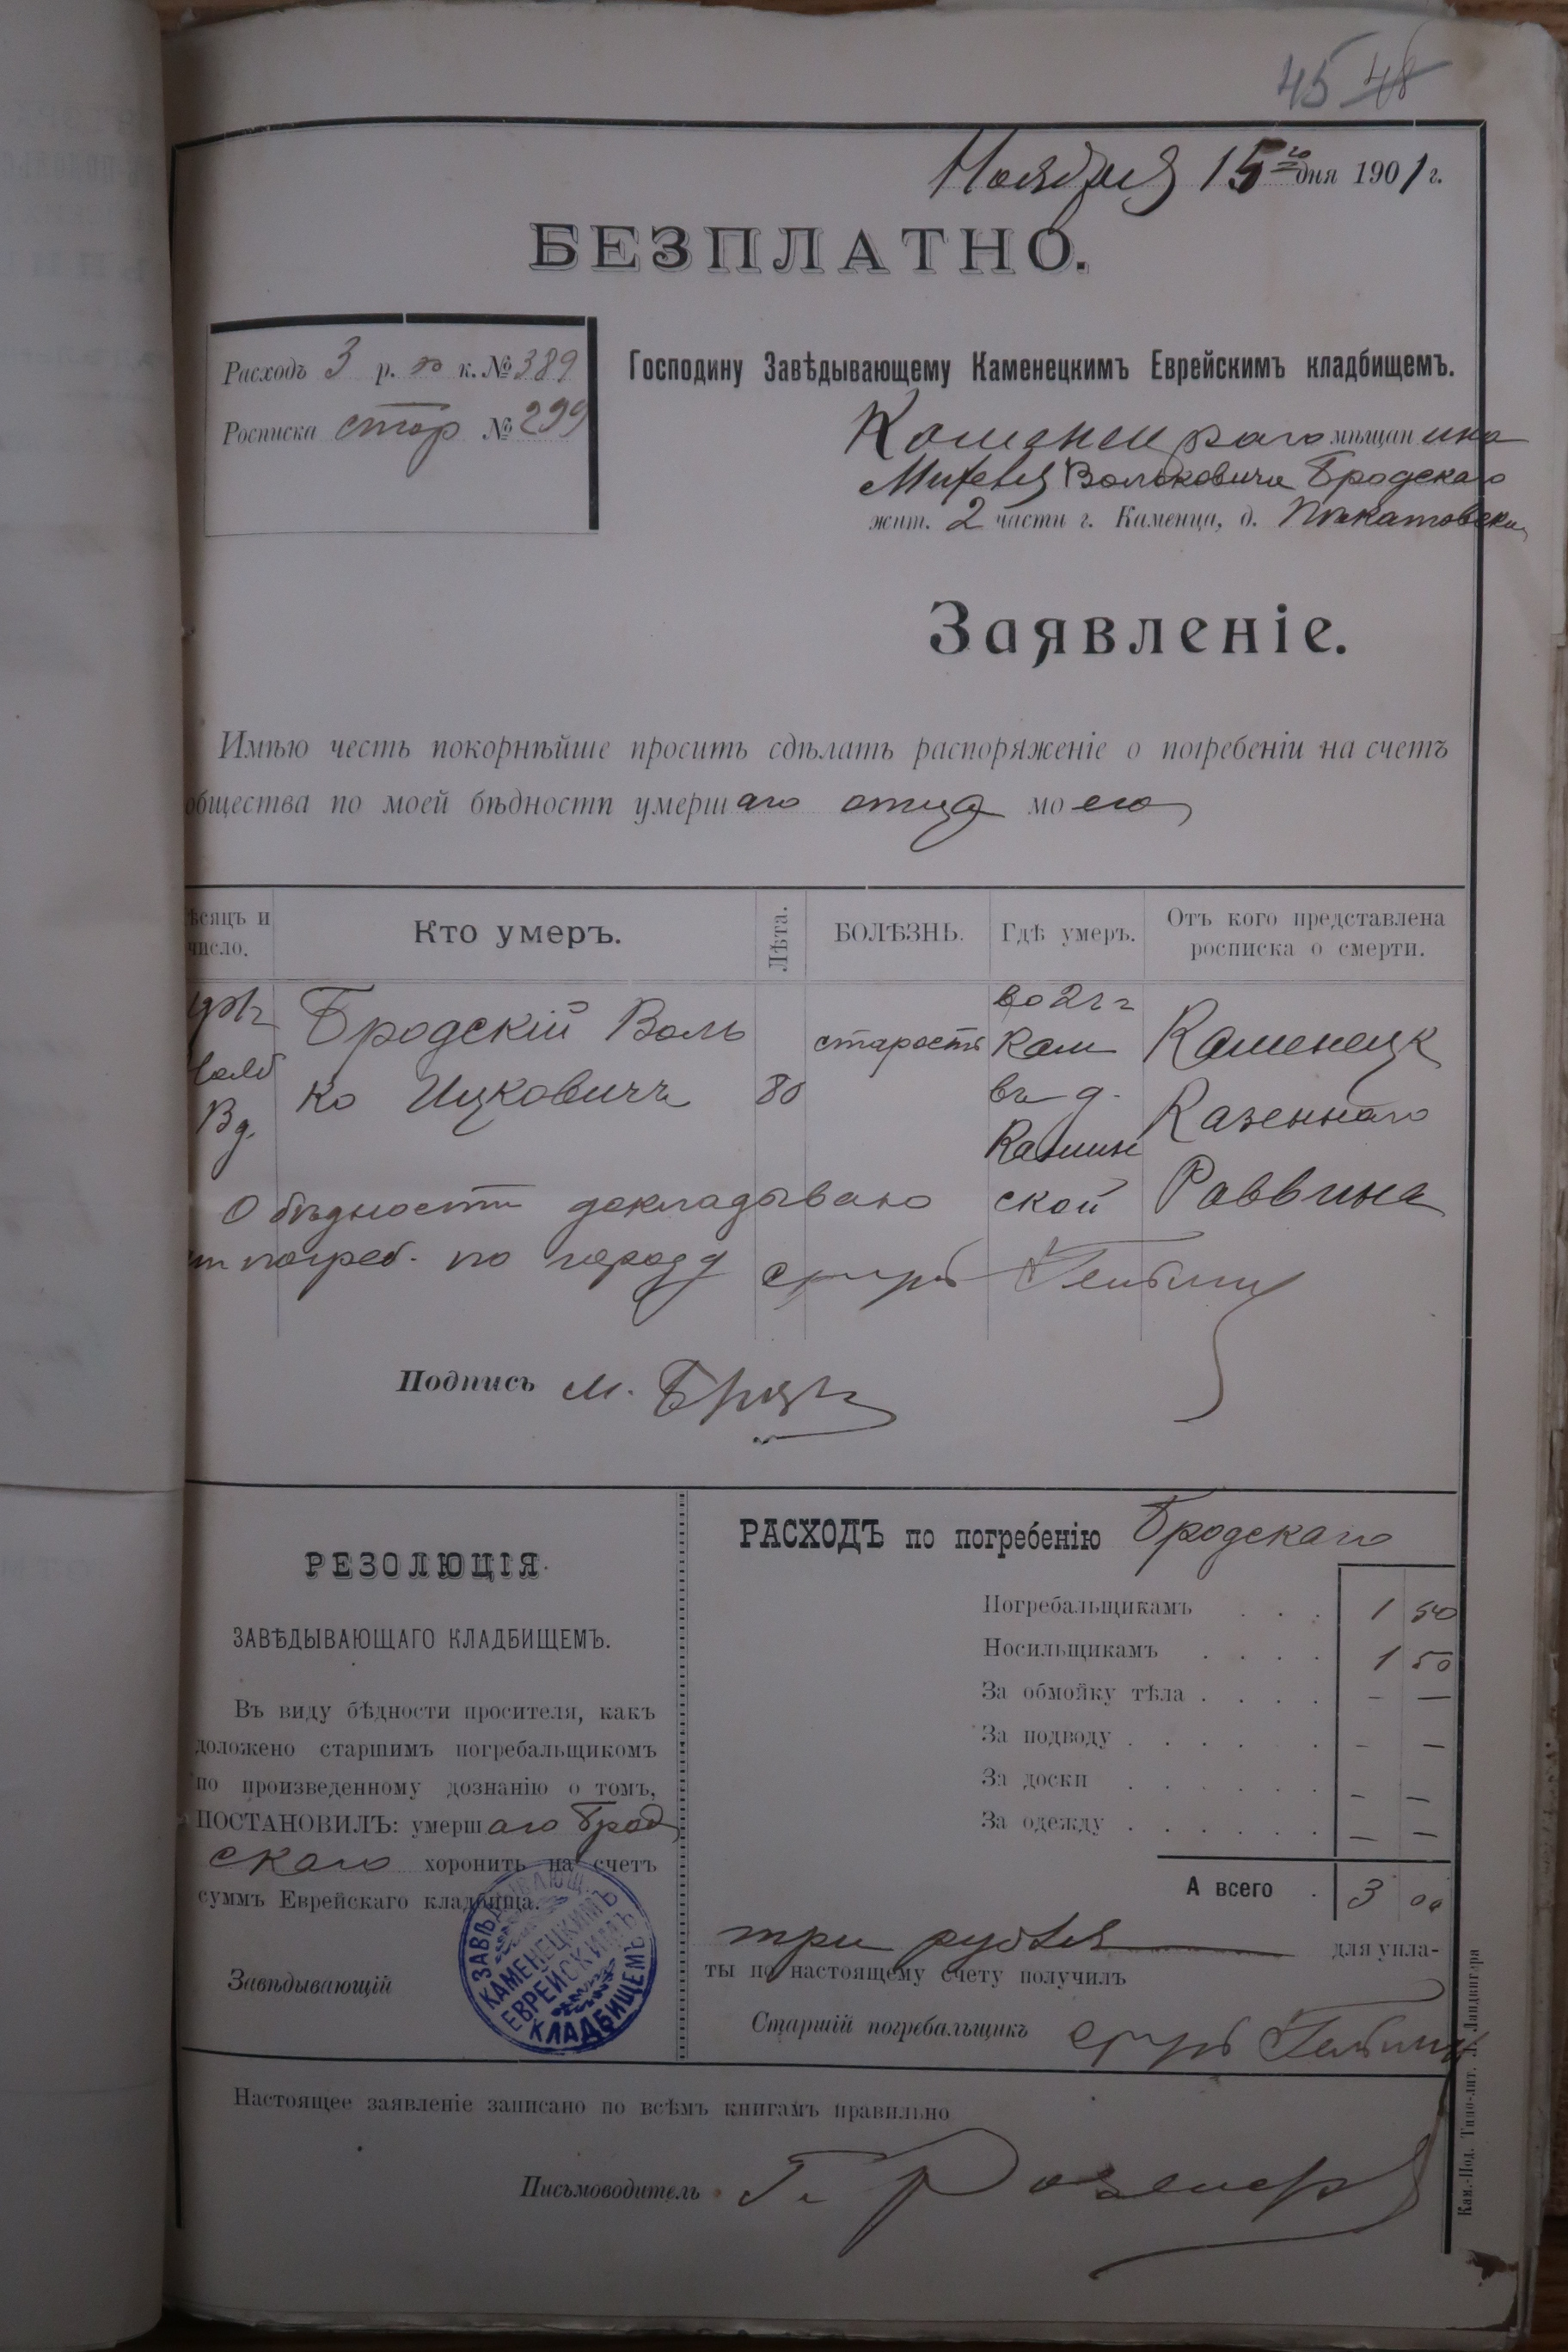 45 48
Ноября 15го дня 1901 г.
БЕЗПЛАТНО.
Расходъ 3 р. к. № 389
Росписка стор № 299
Господину Завѣдывающему Каменецкимъ Еврейскимъ кладбищемъ.
мѣщанина
Михеля Вольковича Бродскаго
жит. 2 части г. Каменца, д.
Заявленіе.
Имѣю честь покорнѣйше просить сдѣлать распоряженіе о погребеніи на счетъ
общества по моей бѣдности умершаго отца моего
ѣсяцъ и число.
Кто умеръ.
Лѣта.
БОЛѢЗНЬ.
Гдѣ умеръ.
Отъ кого представлена росписка о смерти.
Вд.
Бродскій Воль
ко Ицковичъ
80
старость
во 2 ч г
Кам
въ д.
ской
Каменецк
Казеннаго
Раввина
О бѣдности докладывано
погреб. по
Подпись М.
РЕЗОЛЮЦІЯ.
ЗАВѢДЫВАЮЩАГО КЛАДБИЩЕМЪ.
Въ виду бѣдности просителя, какъ
доложено старшимъ погребальщикомъ
по произведенному дознанію о томъ,
ПОСТАНОВИЛЪ: умершаго Брод
скаго хоронить на счетъ
суммъ Еврейскаго кладбища.
Завѣдывающій
ЗАВѢДЫВАЮЩ.
КАМЕНЕЦКИМЪ
ЕВРЕЙСКИМЪ
КЛАДБИЩЕМЪ
РАСХОДЪ по погребенію Бродскаго
Погребальщикамъ . . . 1 50
Носильщикамъ . . . . 1 50
За обмойку тѣла . . . . – —
За подводу . . . . . – —
За доски . . . . . . – —
За одежду . . . . . . — —
А всего . 3 00
три рубля для упла-
ты по настоящему счету получилъ
Старшій погребальщикъ
Настоящее заявленіе записано по всѣмъ книгамъ правильно
Письмоводитель
Кам.-Под. Типо-лит. Л. Ландвигера